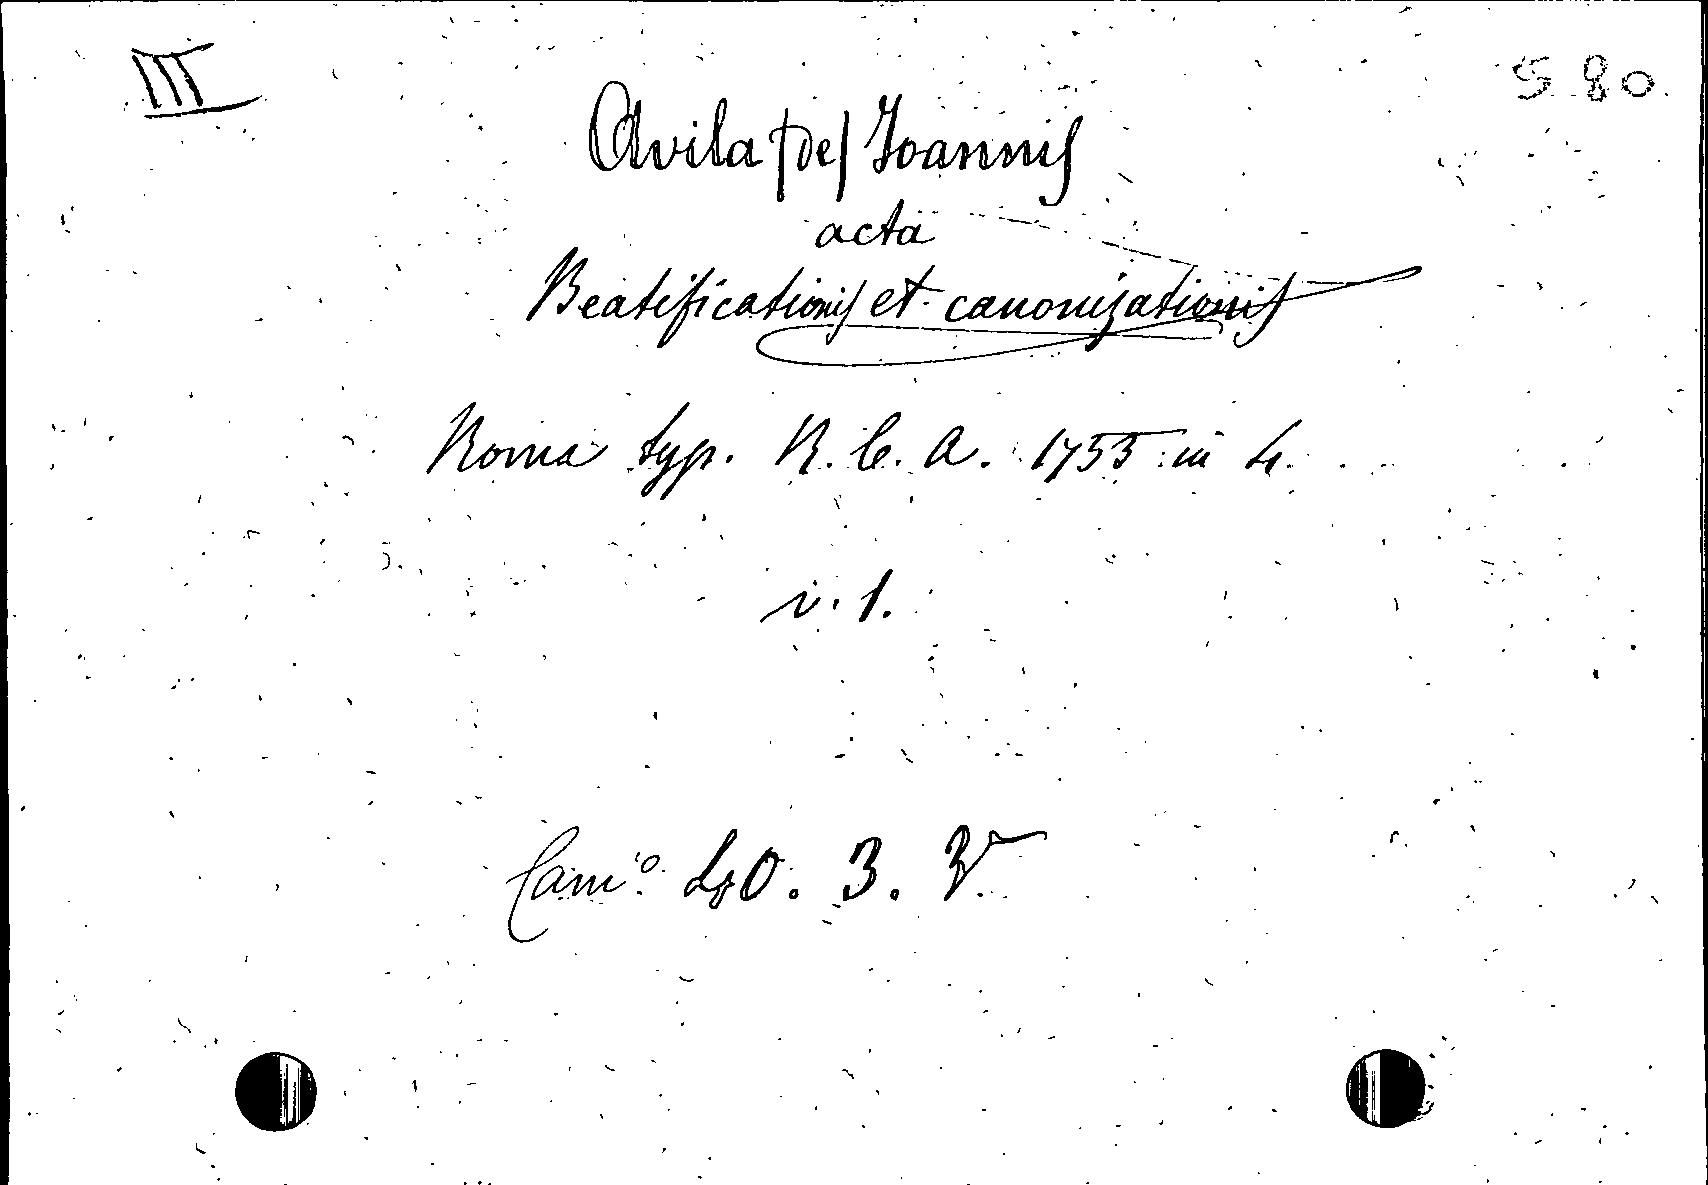 III
580
Avila (De) Joannis
acta
Beatificationis et canonizationis
Roma typ. R. C. A. 1753 in 4.
v. 1.
Cam.º 40. 3.